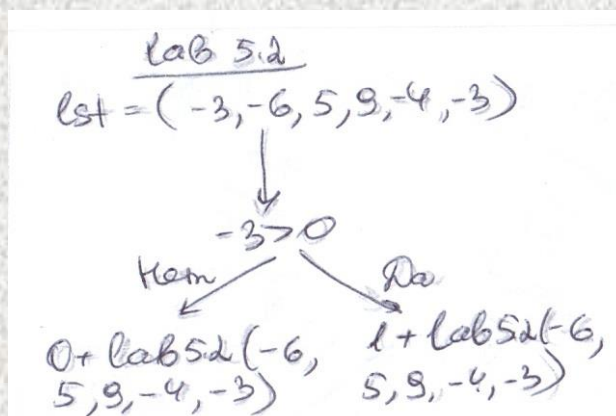 lab 5.2
lst = (-3, -6, 5, 9, -4, -3)
-3>0
Нет Да
0+lab52(-6, 1+lab52(-6,
5, 9, -4, -3) 5, 9, -4, -3)